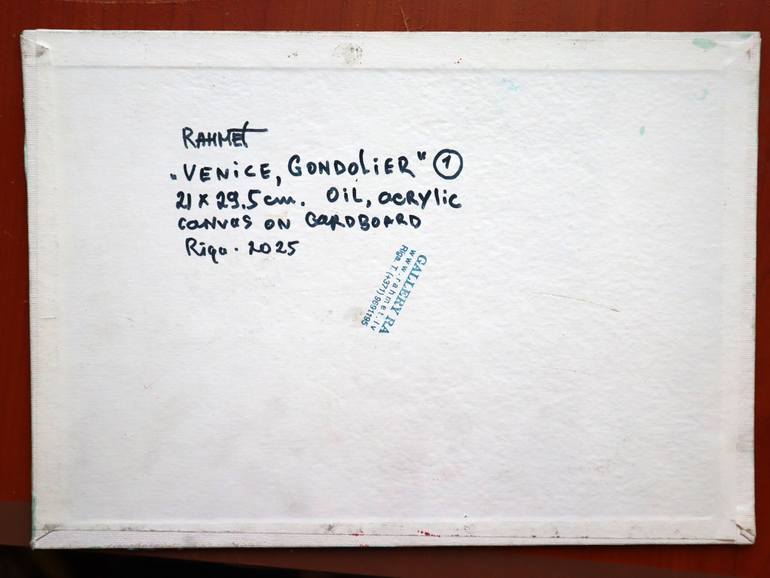 RAHMET
„VENICE, GONDOLIER" ①
21 x 29.5 cm. OIL, ACRYLIC
CANVAS ON CARDBOARD
Riga. 2025
GALLERY RA
www.rahmet.lv
Riga. T (+371)